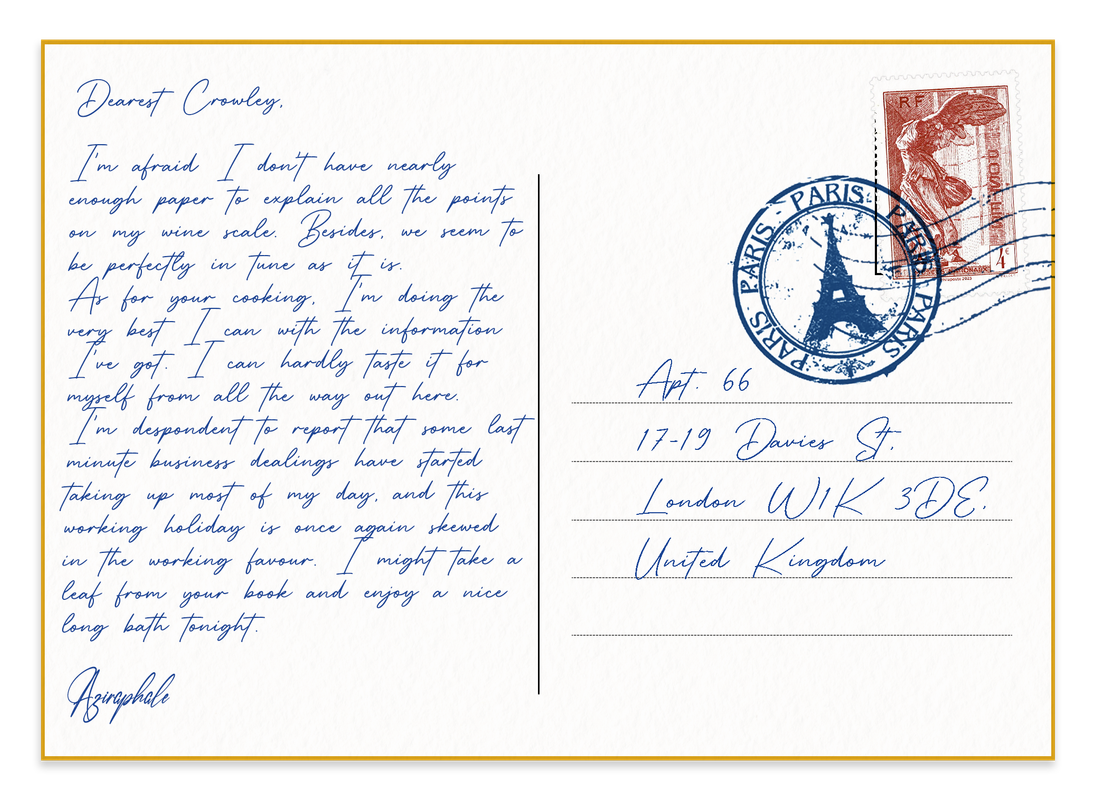 Dearest Crowley,
I'm afraid I don't have nearly
enough paper to explain all the points
on my wine scale. Besides, we seem to
be perfectly in tune as it is.
As for your cooking, I'm doing the
very best I can with the information
I've got. I can hardly taste it for
myself from all the way out here.
I'm despondent to report that some last
minute business dealings have started
taking up most of my day, and this
working holiday is once again skewed
in the working favour. I might take a
leaf from your book and enjoy a nice
long bath tonight.
Aziraphale
RF
4€
PARIS PARIS PARIS PARIS PARIS
Apt. 66
17-19 Davies St.
London W1K 3DE.
United Kingdom